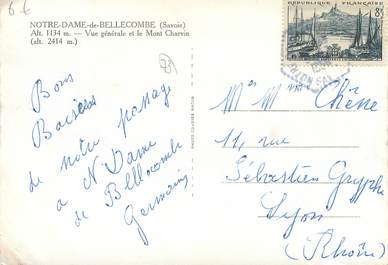 6 €
NOTRE-DAME-de-BELLECOMBE (Savoie)
Alt. 1134 m. — Vue générale et le Mont Charvin
(alt. 2414 m.)
73
RÉPUBLIQUE FRANÇAISE
8f
Bons
Baisers
de notre passage
a N Dame
de Bellecombe
Germain
Mr Mme Chêne
11, rue
Sébastien Gryphe
Lyon
(Rhône)